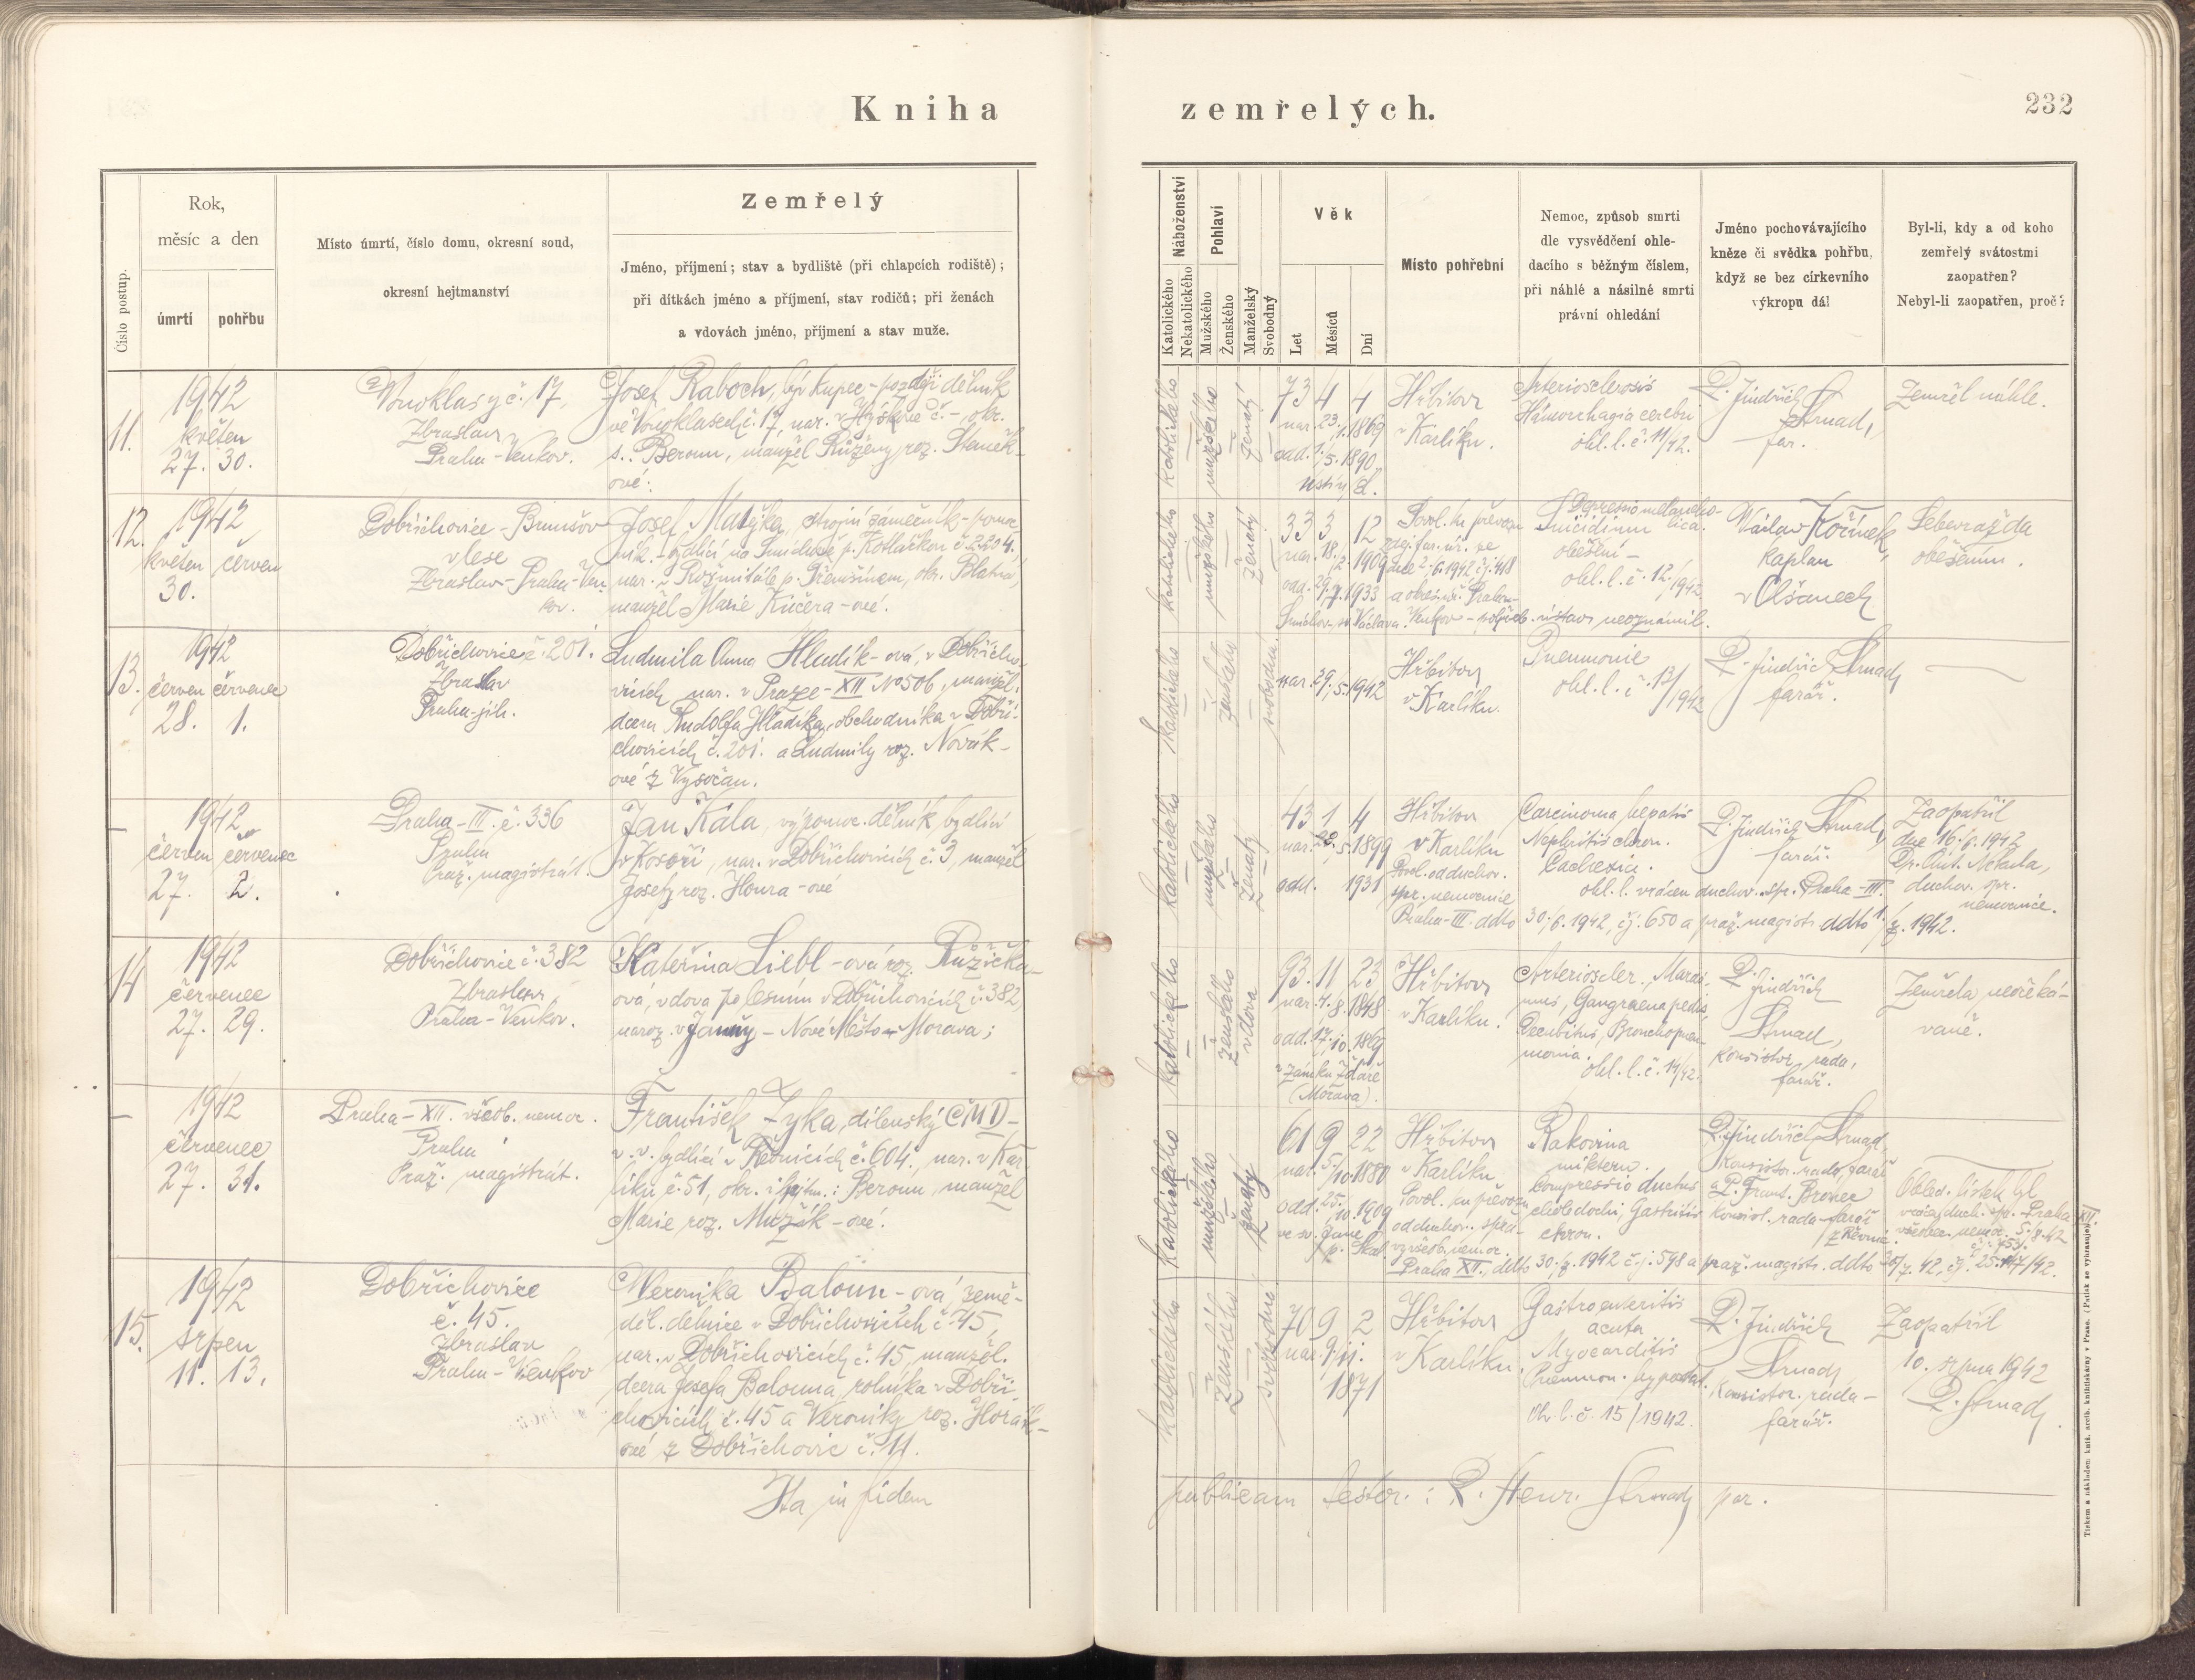 Kniha zemřelých.
232
Číslo postup.
Rok,
měsíc a den
úmrtí
pohřbu
Místo úmrtí, číslo domu, okresní soud,
okresní hejtmanství
Zemřelý
Jméno, příjmení; stav a bydliště (při chlapcích rodiště);
při dítkách jméno a příjmení, stav rodičů; při ženách
a vdovách jméno, příjmení a stav muže.
Náboženství
Katolického
Nekatolického
Pohlaví
Mužského
Ženského
Manželský
Svobodný
Věk
Let
Měsíců
Dní
Místo pohřební
Nemoc, způsob smrti
dle vysvědčení ohle-
dacího s běžným číslem,
při náhlé a násilné smrti
právní ohledání
Jméno pochovávajícího
kněze či svědka pohřbu,
když se bez církevního
výkropu dál
Byl-li, kdy a od koho
zemřelý svátostmi
zaopatřen?
Nebyl-li zaopatřen, proč?
11.
1942
květen
27. 30.
Vonoklasy č. 17,
Zbraslav
Praha-Venkov.
Josef Raboch, býv. kupec - později dělník
ve Vonoklasech č. 17, nar. v Hýskově č. - okr.
s.: Beroun, manžel Růženy roz. Staněk-
ové.
katolického
mužského
ženatý
73 4 4
nar. 23./1. 1869
odd. 1./5. 1890
Hřbitov
v Karlíku.
Arteriosclerosis
Hämorrhagia cerebri
ohl. l. č. 11/42.
P. Jindřich
Strnad,
far.
Zemřel náhle.
12.
1942
květen červen
30.
Dobřichovice - Brunšov
v lese
Zbraslav - Praha-Ven-
kov.
Josef Matějka, strojní zámečník - pomoc-
ník - bydlící na Smíchově p. Kotlářkou č. 2204,
nar. v Rožmitále p. Třemšínem, okr. Blatná,
manžel Marie Kučera-ové.
katolického
mužského
ženatý
33 3 12
nar. 18./2. 1909
odd. 29./7. 1933
Smíchov, sv. Václava.
Povol. ku převozu
dne 2./6. 1942 čj. 418
a okres. úř. Praha-
Venkov - pohřeb. ústav neoznámil.
Depressio melancho-
lica.
Suicidium
oběšení -
ohl. l. č. 12./1942
Václav Kořínek,
kaplan
v Olšanech
Sebevražda
oběšením.
13.
1942
červen červenec
28. 1.
Dobřichovice č. 201.
Zbraslav
Praha-jih.
Ludmila Anna Hladík-ová, v Dobřicho-
vicích, nar. v Praze-XII No 506, manžel.
dcera Rudolfa Hladíka, obchodníka v Dobři-
chovicích č. 201. a Ludmily roz. Novák-
ové z Vysočan.
katolického
ženského
svobodná
nar. 29./5. 1942
Hřbitov
v Karlíku.
Pneumonie
ohl. l. č. 13/1942
P. Jindřich Strnad,
farář.
—
1942
červen červenec
27. 2.
Praha-III. č. 336
Praha
Praž. magistrát.
Jan Kála, výpomoc. dělník, bydlící
v Kosoři, nar. v Dobřichovicích č. 3, manžel
Josefy roz. Houra-ové
katolického
mužského
ženatý
43 1 4
nar. 23./5. 1899
odd. 1931
Hřbitov
v Karlíku
Povol. od duchov.
spr. nemocnice
Praha-III. ddto 30./6. 1942, čj. 650 a praž. magistr. ddto 1./7. 1942.
Carcinoma hepatis
Nephritis chron.
Cachexie.
ohl. l. vrácen duchov. spr. Praha-III.
P. Jindřich Strnad,
farář.
Zaopatřil
dne 16./6. 1942
duchov. spr.
nemocnice.
14
1942
červenec
27. 29.
Dobřichovice č. 382
Zbraslav
Praha-Venkov.
Kateřina Liebl-ová roz. Růžička-
ová, vdova po lesním v Dobřichovicích č. 382,
naroz. v Jamny - Nové Město - Morava;
katolického
ženského
vdova
93 11 23
nar. 4./8. 1848
odd. 17./10. 1869
v zámku Žďáře
(Morava).
Hřbitov
v Karlíku.
Arterioscler., Maras-
mus, Gangraena pedis,
Decubitus, Bronchopneu-
monia.
ohl. l. č. 14/42.
P.
Jindřich
Strnad,
konsistor. rada,
farář.
Zemřela neočeká-
vaně.
—
1942
červenec
27. 31.
Praha-XII. všeob. nemoc.
Praha
Praž. magistrát.
František Zyka, dílenský ČMD-
v. v. bydlící v Řevnicích č. 604, nar. v Kar-
líku č. 51, okr. i hejtm.: Beroun, manžel
Marie roz. Mužík-ové.
katolického
mužského
ženatý
61 9 22
nar. 5./10. 1880
odd. 25./10. 1909
ve sv. Janě
p. Skal.
Hřbitov
v Karlíku
Povol. ku převozu
od duchov. správ.
všeob. nemoc.
Praha XII., ddto 30./7. 1942 č. j. 598 a praž. magistr. ddto 30/7. 42, čj.
Rakovina
compressio ductus
choledochi, Gastritis
chron.
P. Jindřich Strnad,
konsistor. rada, farář
a P. Frant. Brovec
konsist. rada - farář
z Řevnic.
Ohled. lístek byl
vrácen duch. spr. Praha XII.
všeobec. nemoc. 5./8. 42
15.
1942
srpen
11. 13.
Dobřichovice
č. 45.
Zbraslav
Praha-Venkov
Veronika Baloun-ová, země-
děl. dělnice v Dobřichovicích č. 45,
nar. v Dobřichovicích č. 45, manžel.
dcera Josefa Balouna, rolníka v Dobři-
chovicích č. 45 a Veroniky roz. Horák-
ové z Dobřichovic č. 11.
katolického
ženského
svobodná
70 9 2
nar. 9./11.
1871
Hřbitov
v Karlíku.
Gastroenteritis
acuta
Myocarditis
Pneumon. hypostat.
Oh. l. č. 15/1942.
P. Jindřich
Strnad,
konsistor. rada -
farář.
Zaopatřil
10. srpna 1942
P. Strnad.
Ita in fidem publicam testor: P. Henr. Strnad, par.
Tiskem a nákladem kníž. arcib. knihtiskárny v Praze. (Patisk se vyhrazuje.)